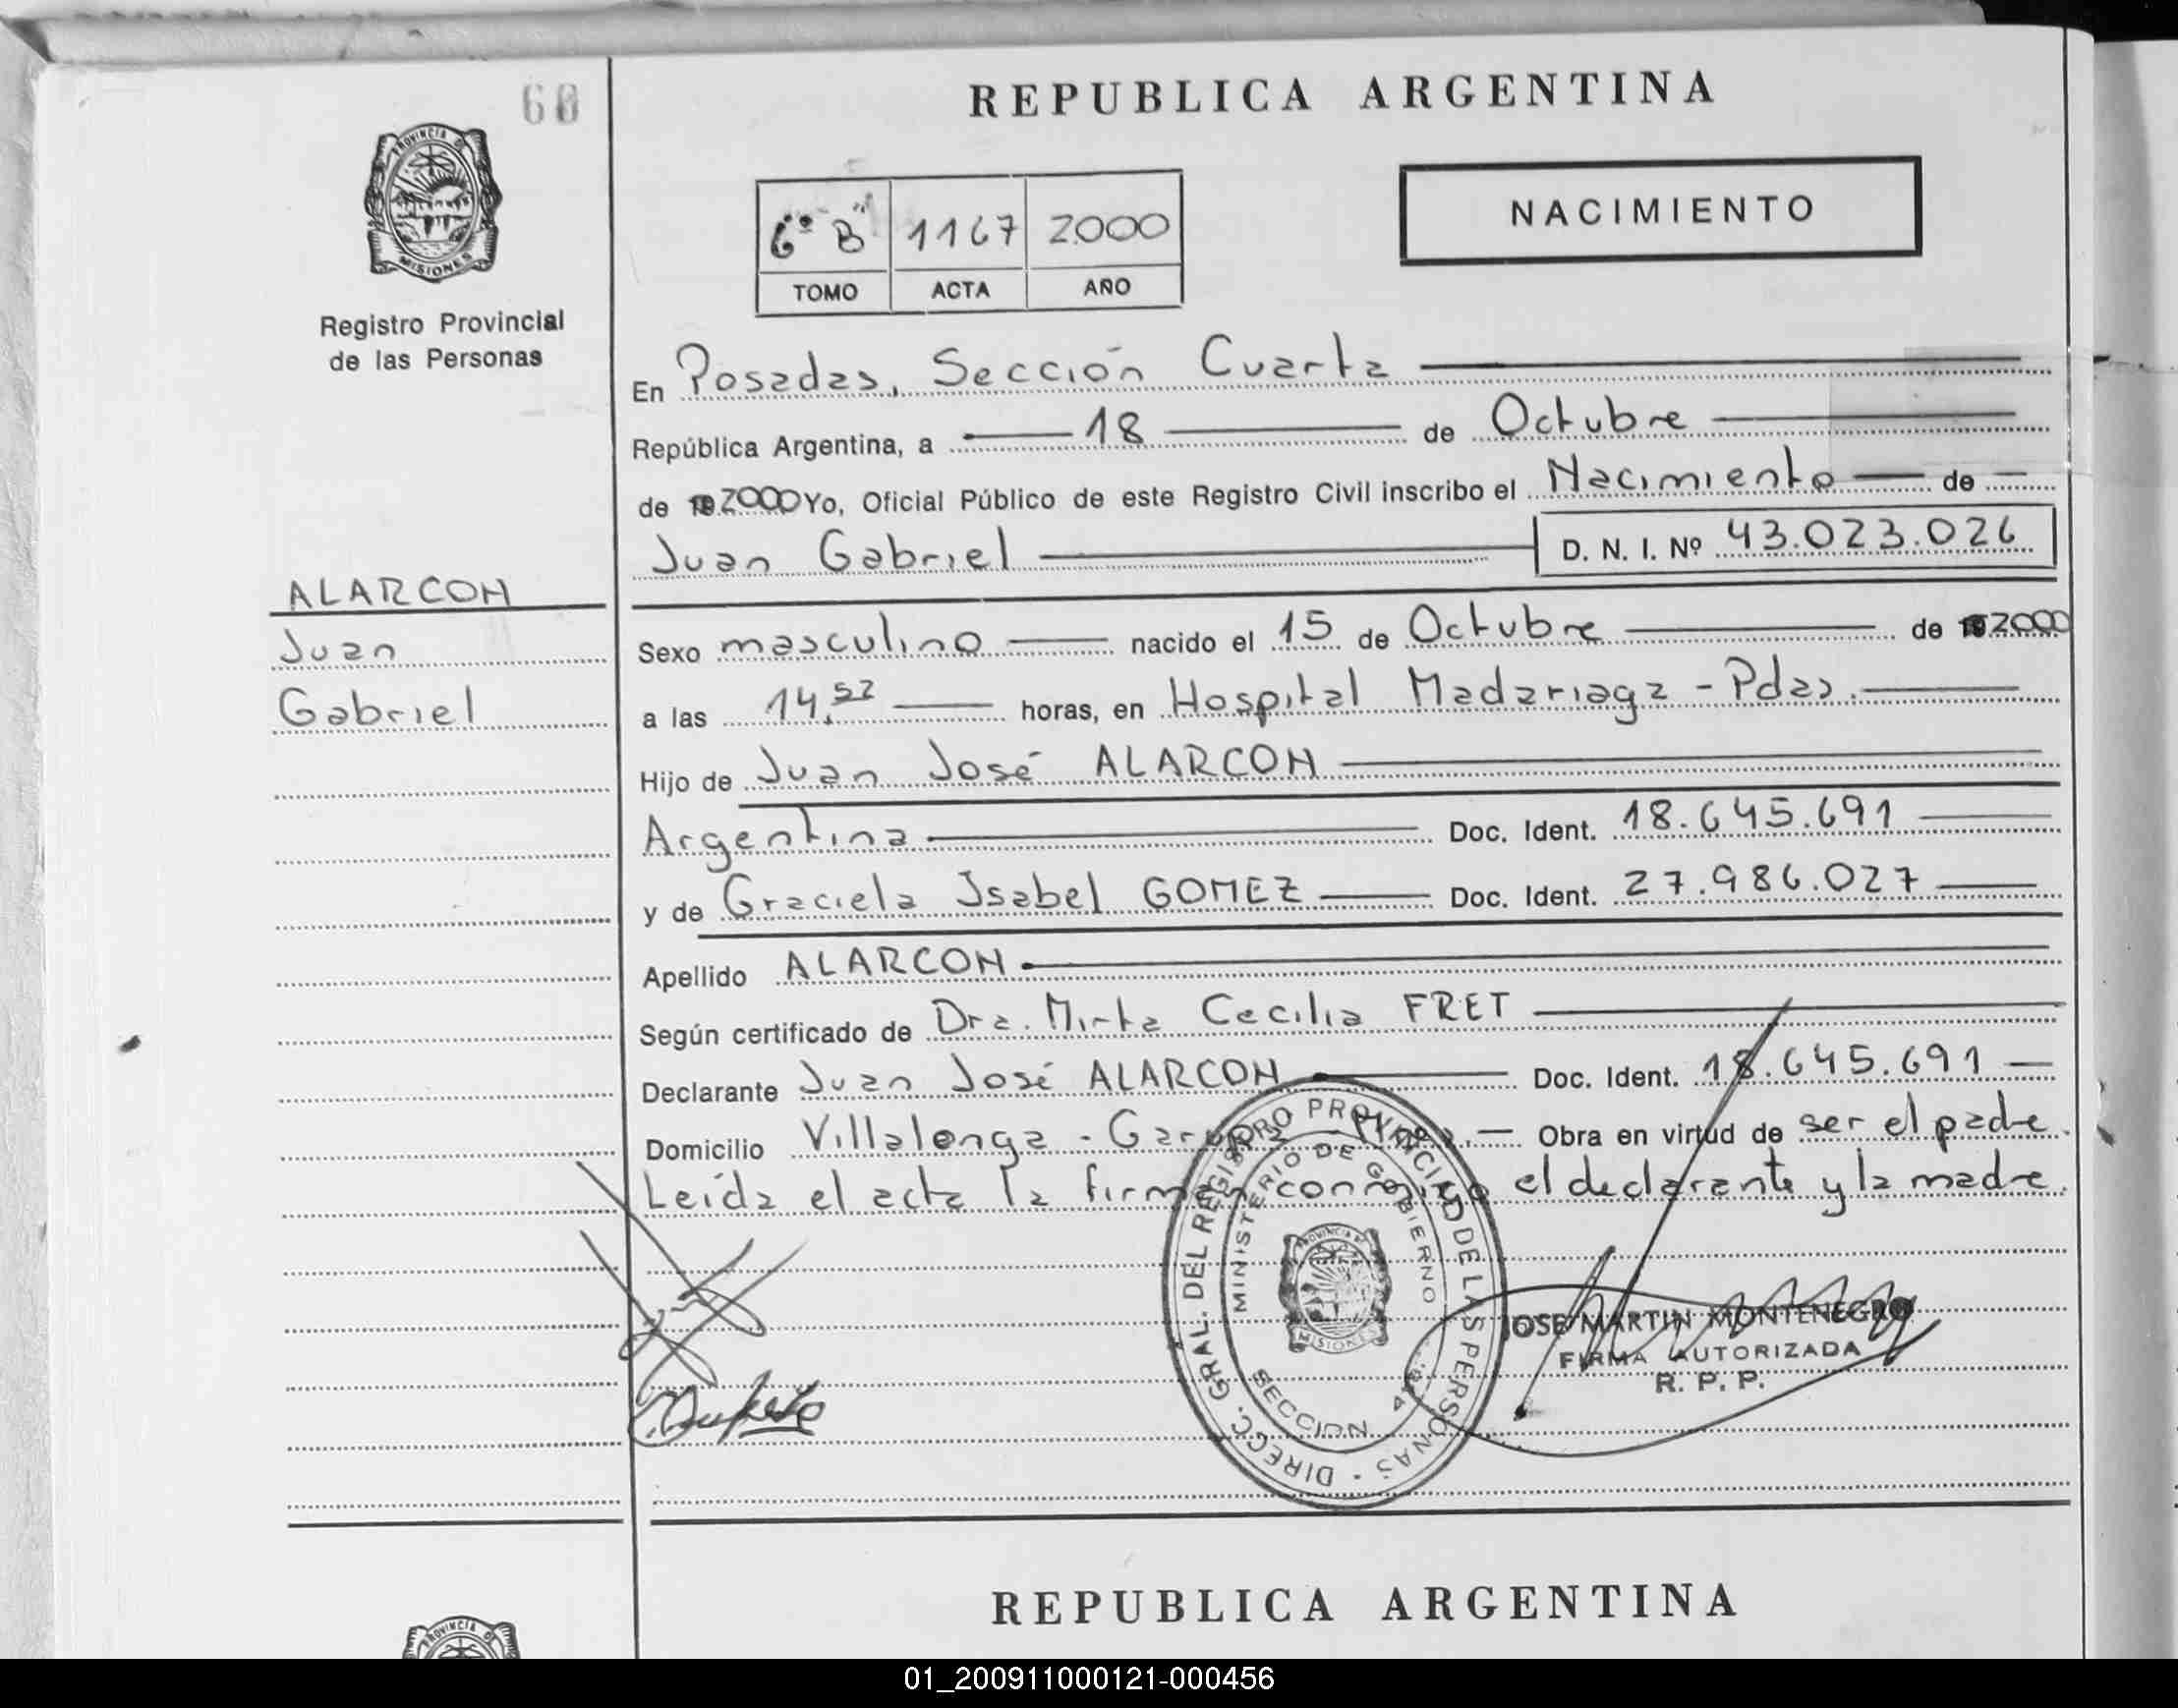 60
REPUBLICA ARGENTINA
PROVINCIA DE
MISIONES
Registro Provincial
de las Personas
6º "B" 1167 2000
TOMO ACTA AÑO
NACIMIENTO
En Posadas, Sección Cuarta
República Argentina, a 18 de Octubre
de 2000 Yo, Oficial Público de este Registro Civil inscribo el Nacimiento de
Juan Gabriel D. N. I. Nº 43.023.026
ALARCON
Juan
Gabriel
Sexo masculino nacido el 15 de Octubre de 2000
a las 14,52 horas, en Hospital Madariaga - Pdas.
Hijo de Juan José ALARCON
Argentina Doc. Ident. 18.645.691
y de Graciela Isabel GOMEZ Doc. Ident. 27.986.027
Apellido ALARCON
Según certificado de Dra. Mirta Cecilia FRET
Declarante Juan José ALARCON Doc. Ident. 18.645.691
Domicilio Villalonga - Garupá - Mnes. Obra en virtud de ser el padre.
Leída el acta la firman conmigo el declarante y la madre.
DIRECC. GRAL. DEL REGISTRO PROVINCIAL DE LAS PERSONAS
MINISTERIO DE GOBIERNO
SECCION 4ta.
PROVINCIA DE
MISIONES
JOSE MARTIN MONTENEGRO
FIRMA AUTORIZADA
R. P. P.
REPUBLICA ARGENTINA
PROVINCIA DE
01_200911000121-000456